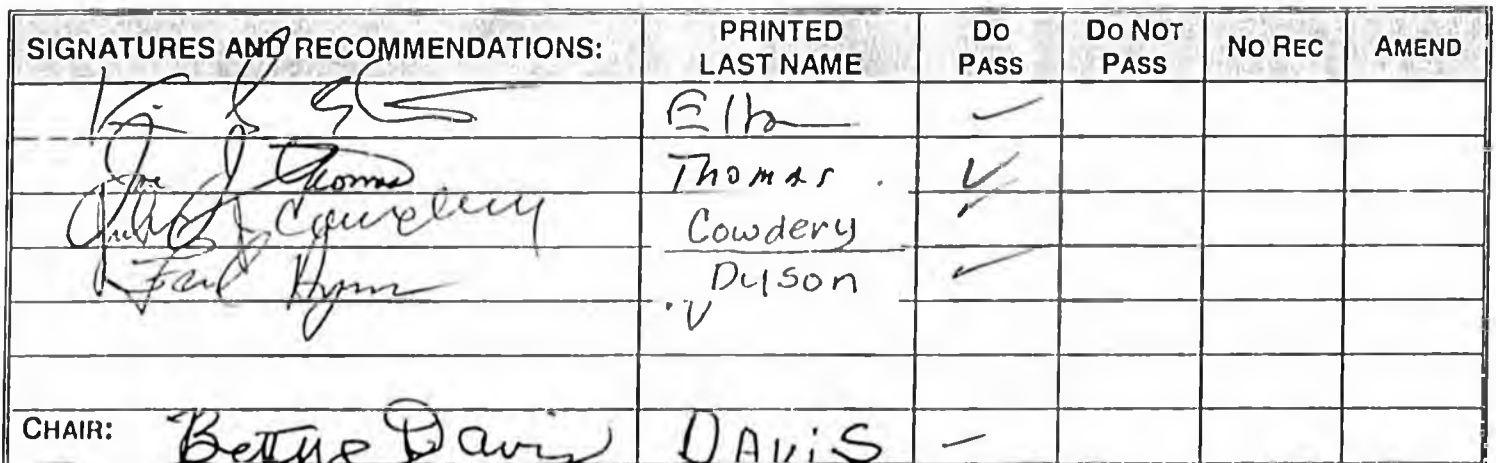 SIGNATURES AND RECOMMENDATIONS: PRINTED LAST NAME DO PASS DO NOT PASS NO REC AMEND
Thomas Thomas ✓
Cowdery Cowdery ✓
Dyson ✓
CHAIR: Bettye Davis DAViS